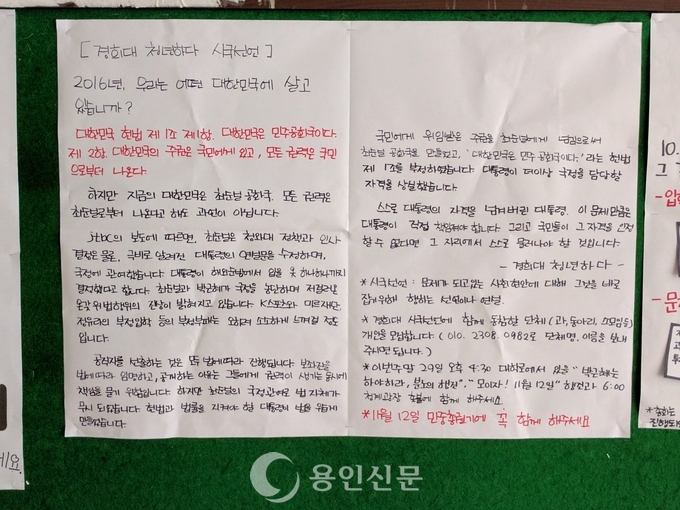 [ 경희대 청년하다 시국선언 ]
2016년, 우리는 어떤 대한민국에 살고
있습니까?
대한민국 헌법 제 1조 제1항. 대한민국은 민주공화국이다.
제 2항. 대한민국의 주권은 국민에게 있고, 모든 권력은 국민
으로부터 나온다.
하지만 지금의 대한민국은 최순실 공화국. 모든 권력은
최순실로부터 나온다고 해도 과언이 아닙니다.
jtbc의 보도에 따르면, 최순실은 청와대 정책과 인사
결정은 물론, 극비로 알려진 대통령의 연설문을 수정하며,
국정에 관여했습니다. 대통령이 해외순방에서 입을 옷 하나하나까지
결정했다고 합니다. 최순실과 박근혜가 국정을 농단하며 저질러온
온갖 위법행위의 전말이 밝혀지고 있습니다. K스포츠와 미르재단,
정유라의 부정입학 등의 부정부패는 오히려 소소하게 느껴질 정도
입니다.
공직자를 선출하는 것은 모두 법에 따라 진행됩니다.
법에 따라 임명하고, 공개하는 이유는 그들에게 권력이 생기는 동시에
책임을 묻기 위함입니다. 하지만 최순실의 국정관여로 법 지체가
무시 되었습니다. 헌법과 법률을 지켜야 할 대통령이 법을 우습게
만들었습니다.
국민에게 위임받은 주권을 최순실에게 넘김으로써
최순실 공화국을 만들었고, '대한민국은 민주 공화국이다.' 라는 헌법
제 1조를 부정하였습니다. 대통령이 더이상 국정을 담당할
자격을 상실했습니다.
스스로 대통령의 자격을 넘겨버린 대통령. 이 문제만큼은
대통령이 직접 책임져야 합니다. 그리고 국민들이 그 자격을 인정
할 수 없다면 그 자리에서 스스로 물러나야 할 것입니다.
- 경희대 청년하다 -
* 시국선언 : 문제가 되고있는 사회현안에 대해 그것을 바로
잡기위해 행하는 선언이나 연설.
* 경희대 시국선언에 함께 동참할 단체 (과, 동아리, 소모임 등)
개인을 모집합니다 (010. 2308. 0982로 단체명, 이름을 보내
주시면 됩니다.)
* 이번주말 29일 오후 4:30 대학로에서 있을 "박근혜는
하야하라, 분노의 행진", "모이자! 11월 12일" 행진과 6:00
청계광장 촛불에 함께 해주세요.
* 11월 12일 민중총궐기에 꼭 함께 해주세요
10.
그
- 입학
- 문
용인신문